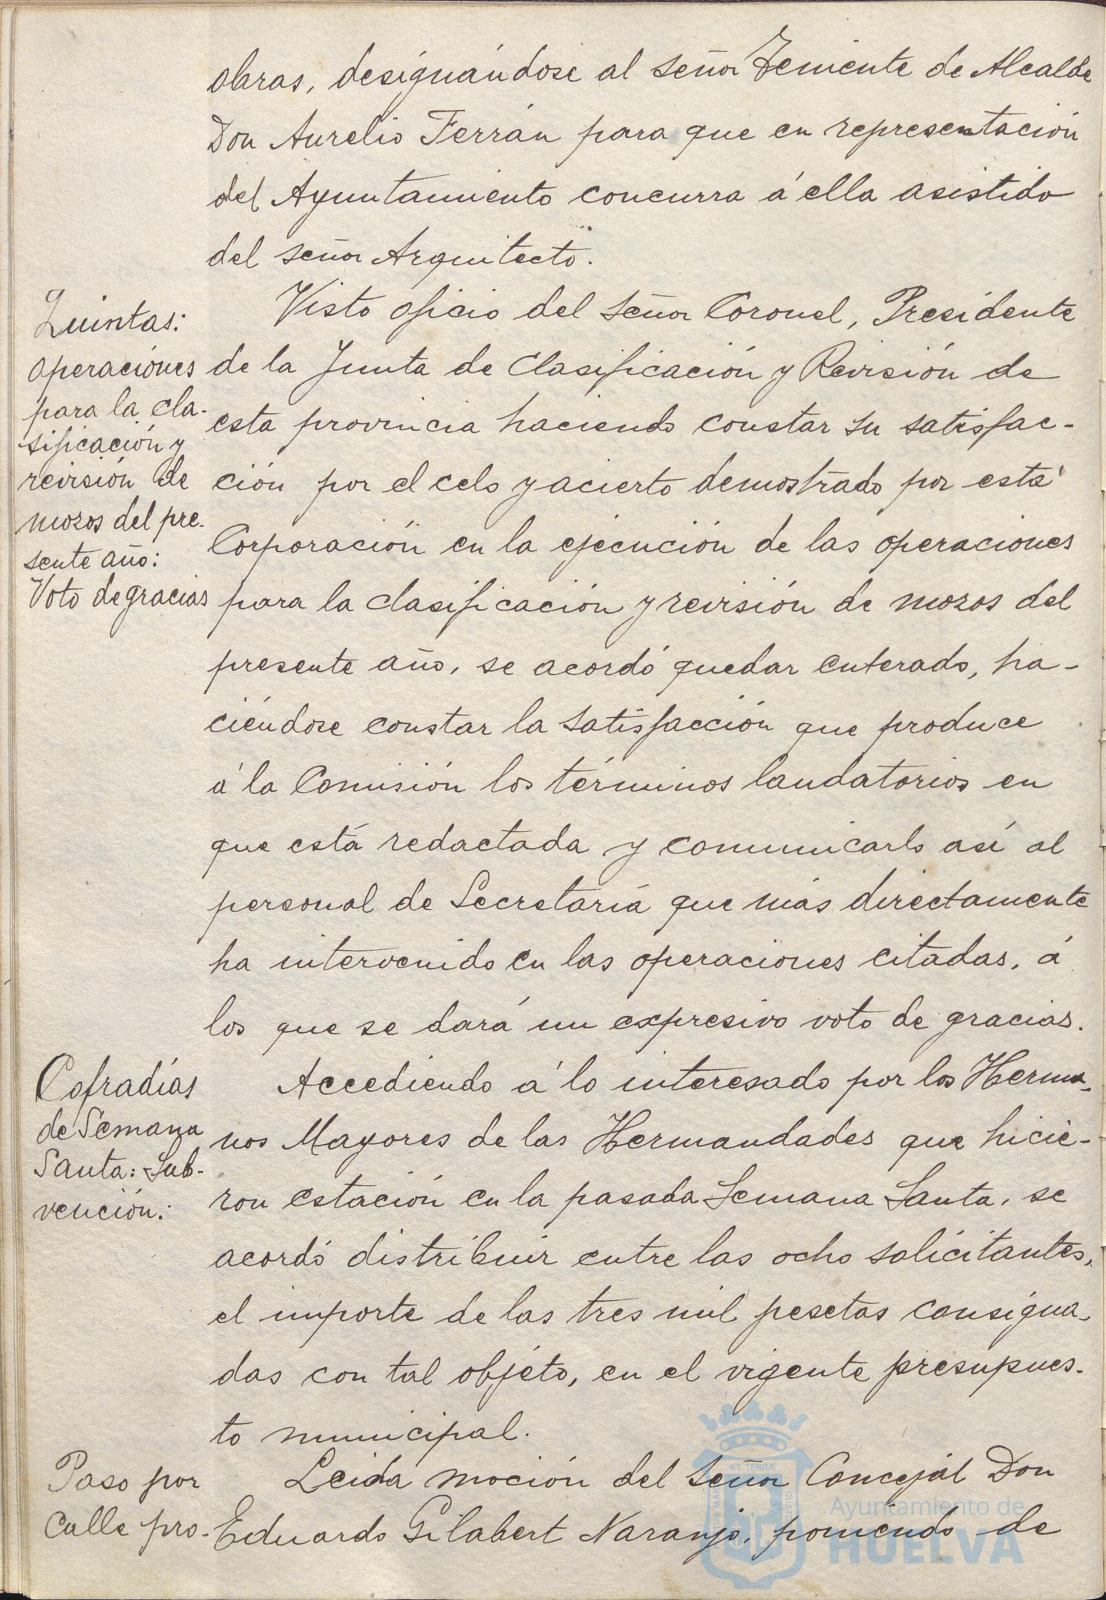 obras, designándose al señor Teniente de Alcalde
Don Aurelio Ferrán para que en representación
del Ayuntamiento concurra á ella asistido
del señor Arquitecto.
Quintas:
operaciones
para la cla-
sificación y
revisión de
mozos del pre-
sente año:
Voto de gracias
Visto oficio del Señor Coronel, Presidente
de la Junta de Clasificación y Revisión de
esta provincia haciendo constar su satisfac-
ción por el celo y acierto demostrado por esta
Corporación en la ejecución de las operaciones
para la clasificación y revisión de mozos del
presente año, se acordó quedar enterado, ha-
ciéndose constar la satisfacción que produce
á la Comisión los términos laudatorios en
que está redactada y comunicarlo así al
personal de Secretaría que más directamente
ha intervenido en las operaciones citadas, á
los que se dará un expresivo voto de gracias.
Cofradías
de Semana
Santa: Sub-
vención:
Accediendo á lo interesado por los Herma-
nos Mayores de las Hermandades que hicie-
ron estación en la pasada Semana Santa, se
acordó distribuir entre las ocho solicitantes,
el importe de las tres mil pesetas consigna-
das con tal objéto, en el vigente presupues-
to municipal.
Paso por
Calle pro-
Leida moción del Señor Concejal Don
Eduardo Gilabert Naranjo, poniendo de
Ayuntamiento de
HUELVA